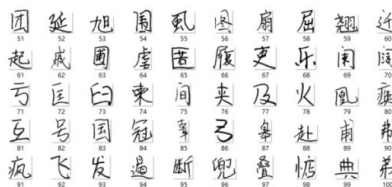 团 延 旭 围 虱 图 扇 屈 翘 近
51 52 53 54 55 56 57 58 59 60
起 戚 圃 虐 苦 履 吏 乐 闰
61 62 63 64 65 66 67 68 69 70
亏 匡 臼 柬 间 夹 及 火 凰
71 72 73 74 75 76 77 78 79 80
互 号 国 冠 弓 赴 甫 弗
81 82 83 84 85 86 87 88 89 90
疯 飞 发 断 兜 叠 惦 典
91 92 93 94 95 96 97 98 99 100